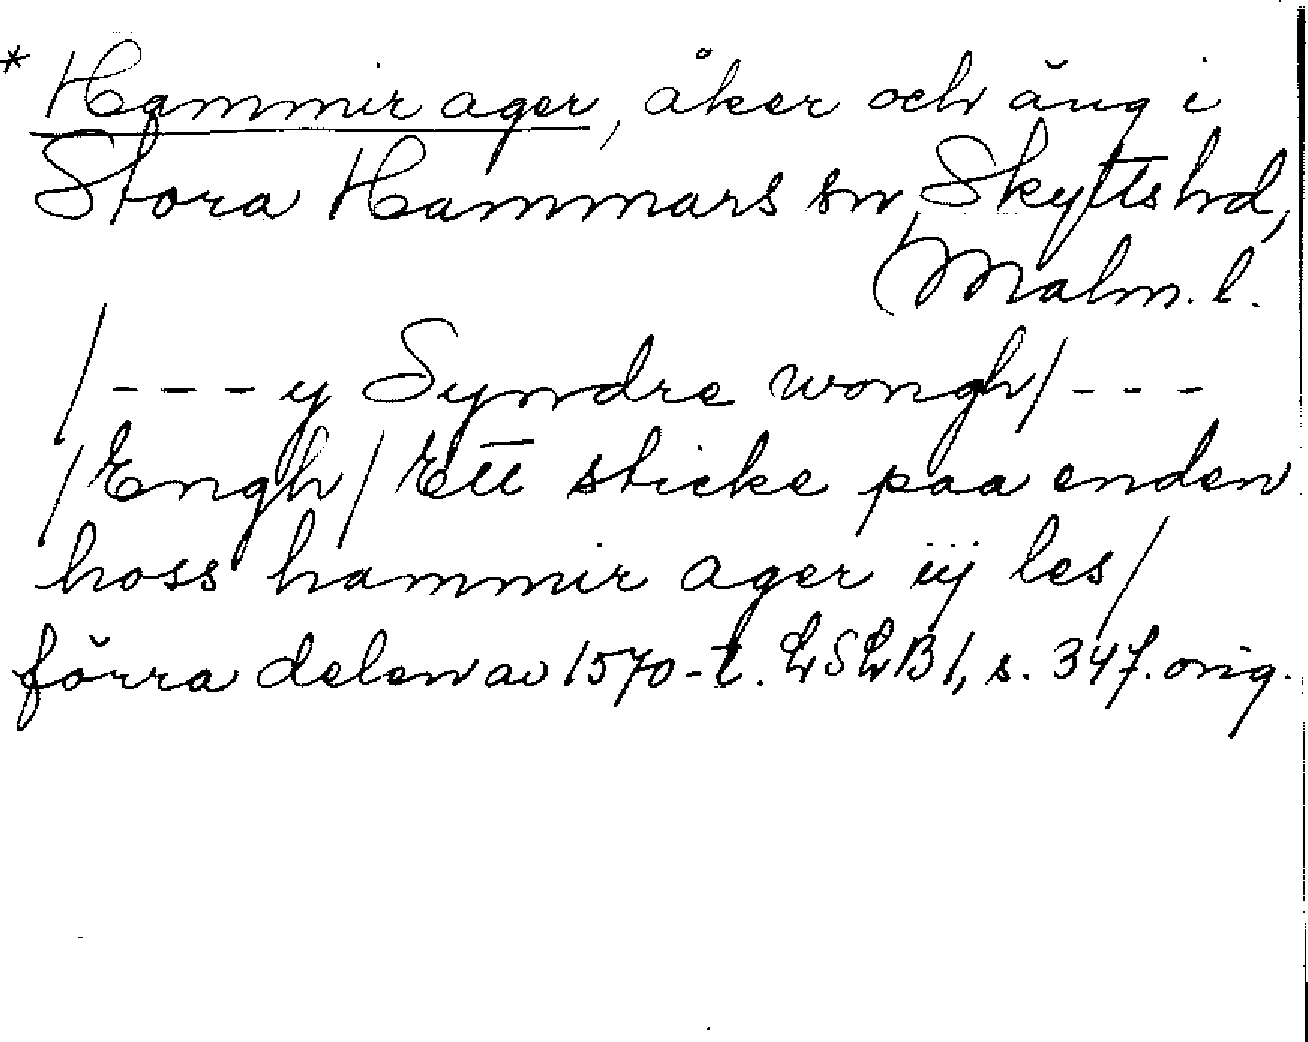 * Hammir ager, åker och äng i
Stora Hammars sn, Skytts hd,
Malm. l.
/--- y Syndre wongh/ ---
/Engh/ Ett sticke paa enden
hoss hammir ager iij les/
förra delen av 1570-t. LSLB 1, s. 347. orig.